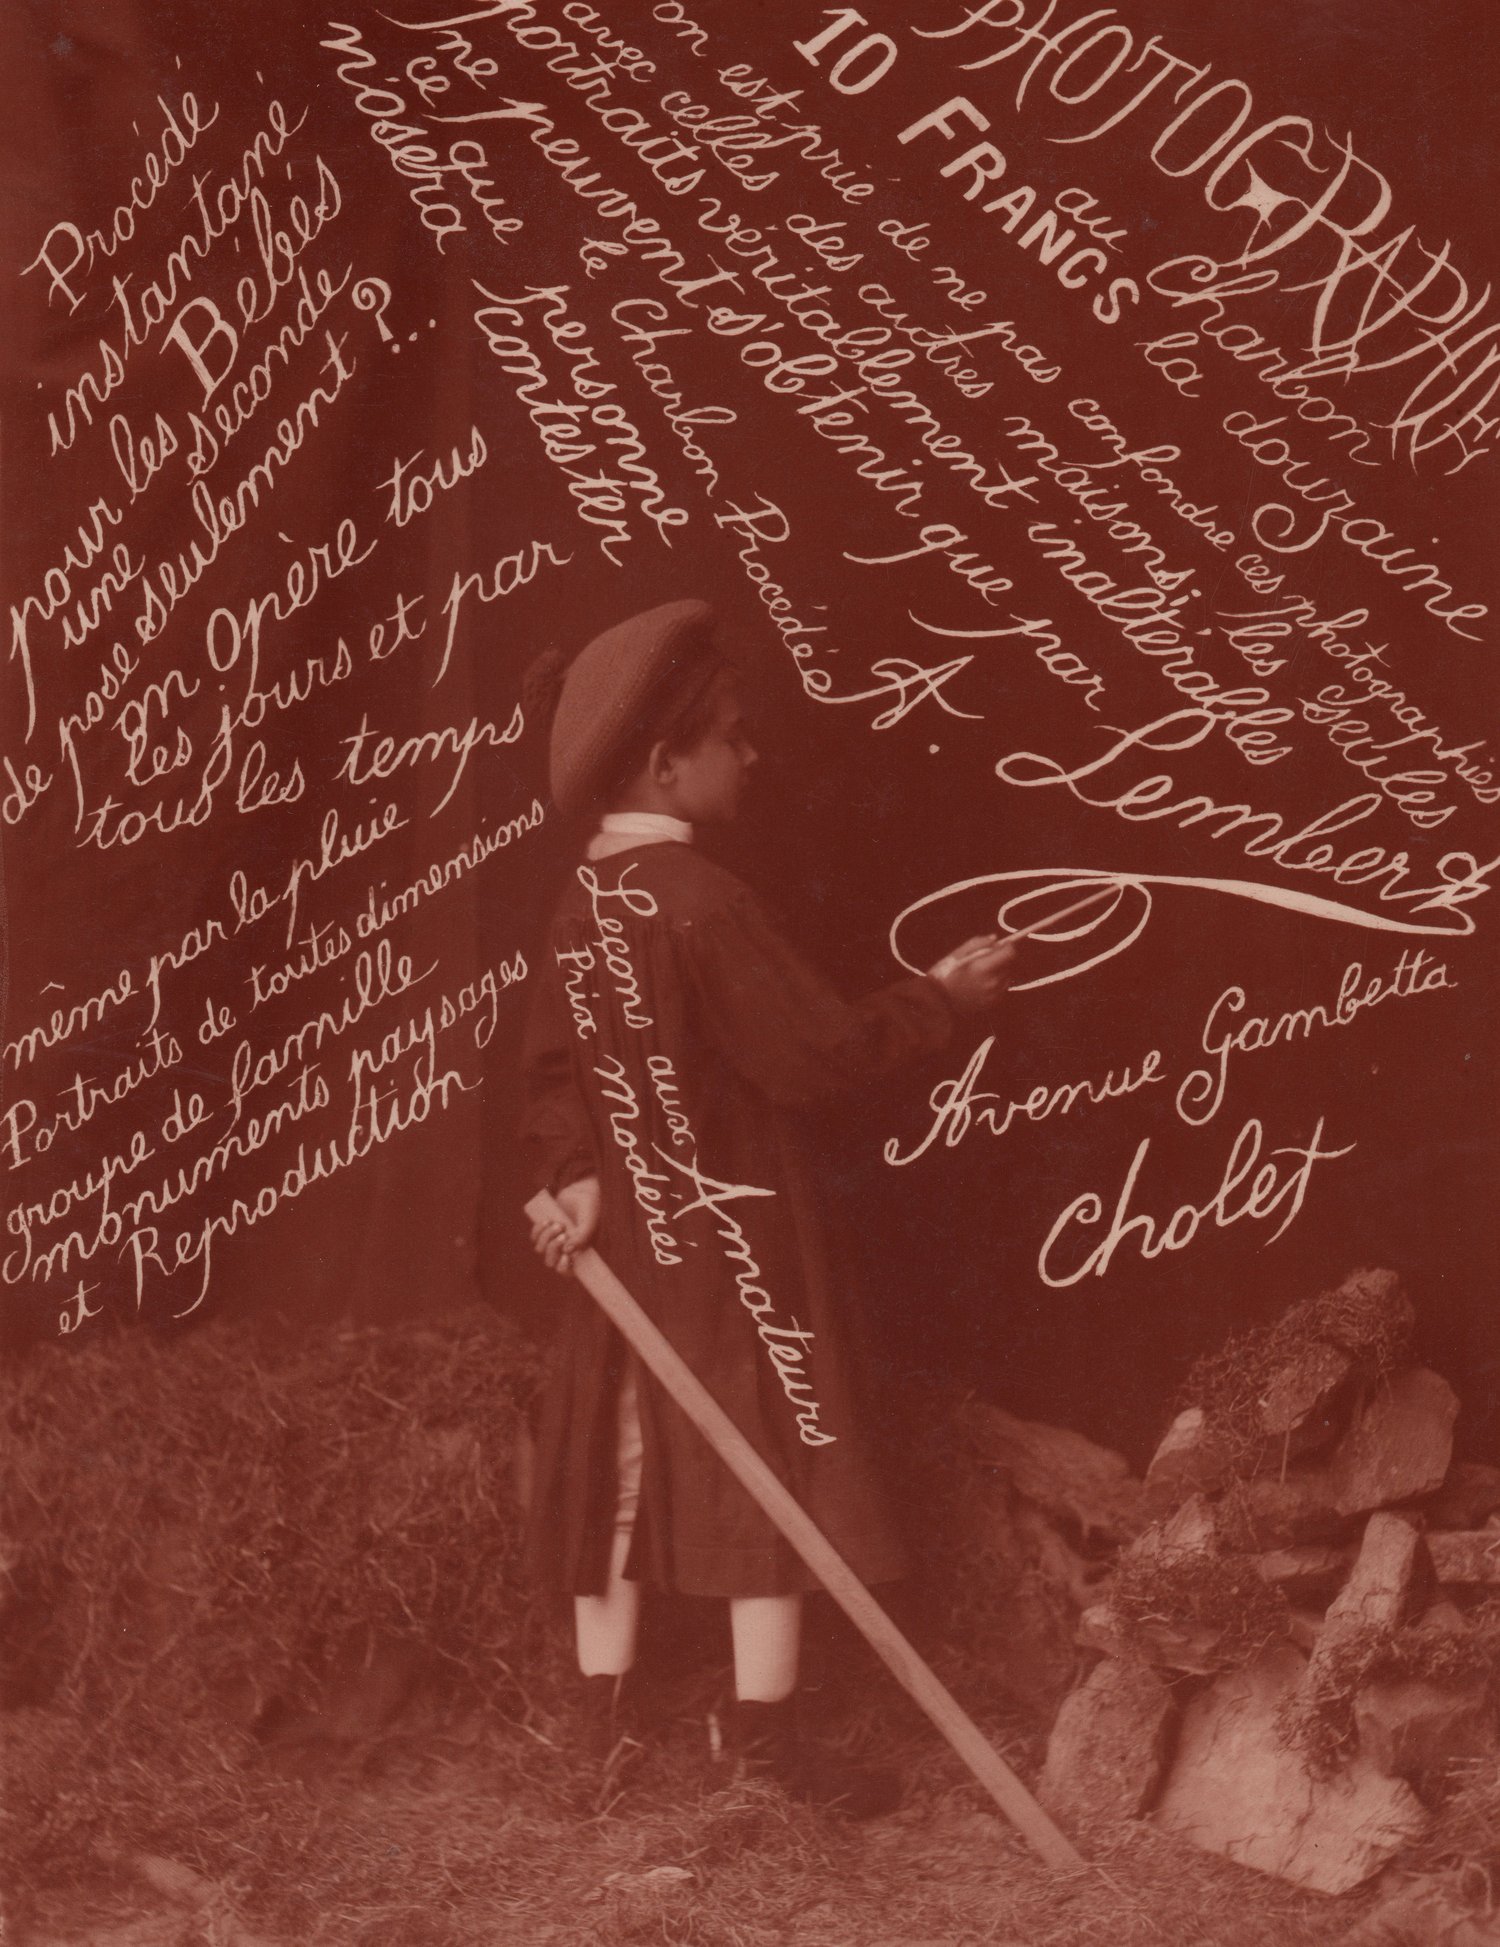 Procédé
instantané
pour les Bébés
une seconde
de pose seulement ?..
on opère tous
les jours et par
tous les temps
même par la pluie
Portraits de toutes dimensions
groupe de famille
monuments paysages
et Reproduction
PHOTOGRAPHIE
au Charbon
10 FRANCS la douzaine
on est prié de ne pas confondre ces photographies
avec celles des autres maisons, les seules
portraits véritablement inaltérables
ne peuvent s'obtenir que par
ce que le Charbon Procédée A. Lembert
n'osera personne
contester
Avenue Gambetta
Cholet
Leçons aux Amateurs
Prix modérés